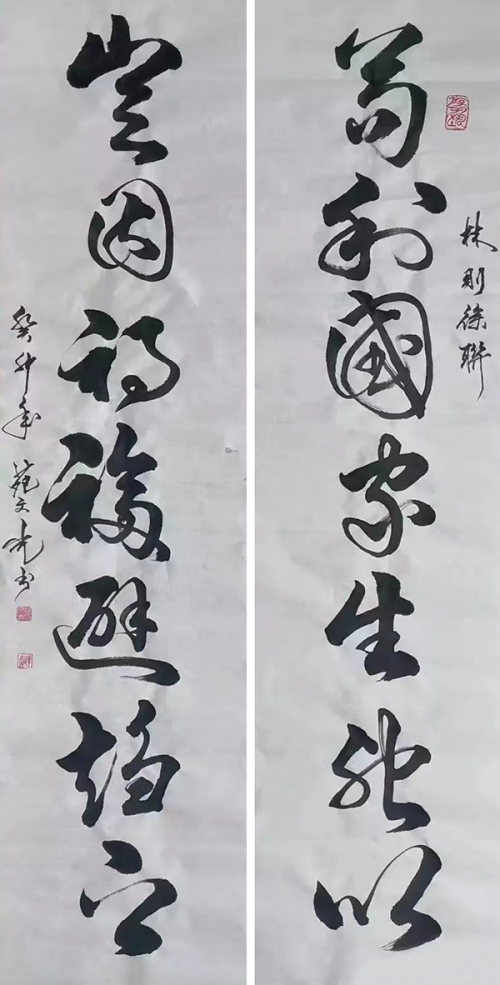 林則徐聯
苟利國家生死以
豈因禍福避趨之
癸卯年 苑文光书